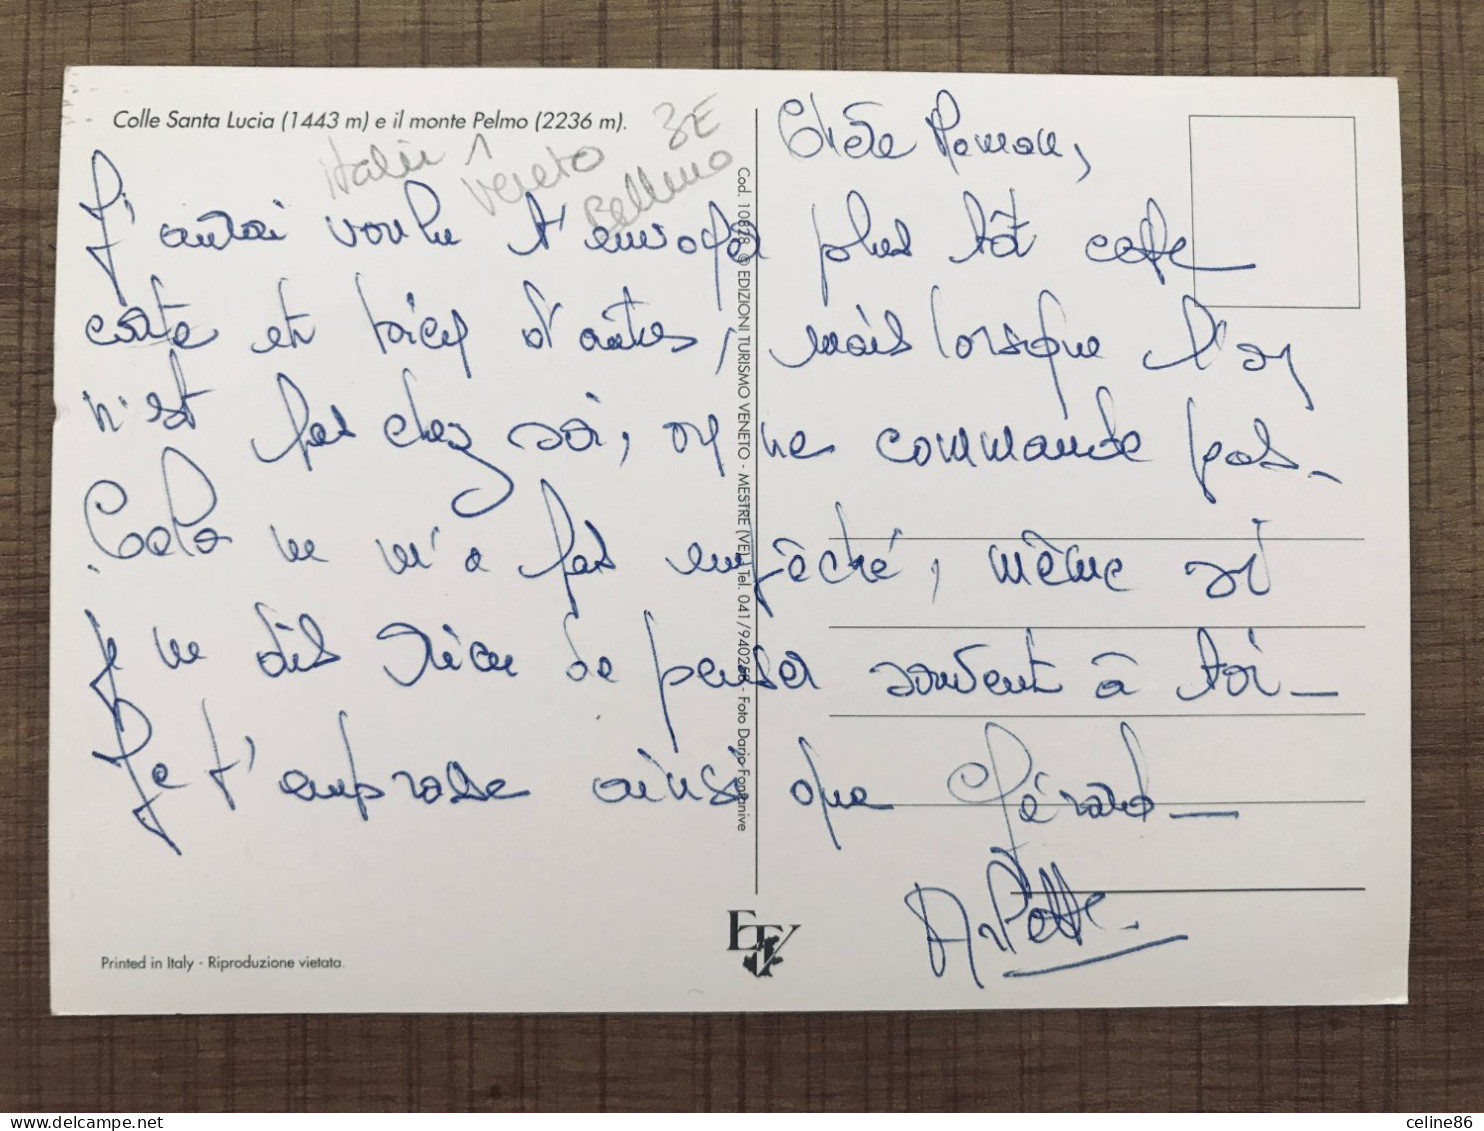 Colle Santa Lucia (1443 m) e il monte Pelmo (2236 m).
Italie Veneto 3E
Belluno
Chère Maman,
J'aurai voulu t'envoyer plus tôt cette
carte et d'autres, mais lorsque l'on
n'est pas chez soi, on ne commande pas_
Cela ne m'a pas empêché, même si
je ne dis rien de penser souvent à toi_
Je t'embrasse ainsi que Gérard_
Cod. 10828 © EDIZIONI TURISMO VENETO - MESTRE (VE) - Tel. 041/940268 - Foto Dario Fontanive
ETV
Printed in Italy - Riproduzione vietata.
celine86